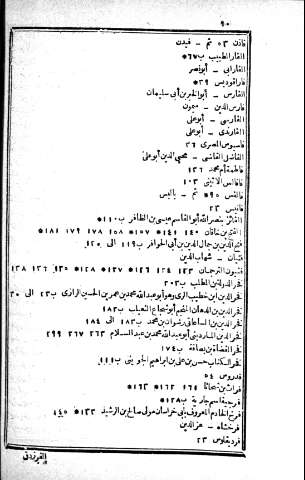 ٩٠
فاذن ٥٣ ثم - فيدن
الفار الطبيب ب ٦٧*
الفارابى - أبو نصر
فارافوديس ٣٩*
الفارس - أبو الخير بن أبى سليمان
فارس الدين - ميمون
الفارسى - أبو على
الفاوندى - أبو على
فاسيوس المصرى ٣٦
الفاضل الفاضى - محيى الدين أبو على
فاطمة أم محمد ١٣٦
فافالس الاثينى ١٠٣
فالقس ٩٥* ثم - باليس
فانيس ٢٣
الفائز بنصر الله أبو القاسم عيسى بن الظافر ب ١١٠*
الفتح بن خاقان ١٤٠ ١٤١* ١٥٧ ١٥٨ ١٧٨ ١٧٩ ١٨١*
فتح الدين بن جمال الدين بن أبى الحوافر ب ١١٩ الى ١٢٠
فتيان - شهاب الدين
فثيون الترجمان ١٢٣ ١٢٤ ١٢٦* ١٢٧* ١٢٨* ١٣٥ ١٣٦ ١٣٨
فخر الدولة بن المطلب ب ٢٠٣
فخر الدين ابن خطيب الرى وهو أبو عبد الله محمد بن عمر بن الحسين الرازى ب ٢٣ الى ٣٠
فخر الدين بن الدهان المنجم أبو شجاع الثعيلب ب ١٨٢
فخر الدين بن الساعاتى رضوان بن محمد ب ١٨٣ الى ١٨٤
فخر الدين الماردينى أبو عبد الله محمد بن عبد السلام ٢٦٣ ٢٦٧ ٢٩٩
فخر القضاة بن بصاقة ب ١٧٤
فخر الكتاب حسن بن على بن ابراهيم الجوينى ب ١١١
فدروس ٥٤
فرات بن شحاثا ١٦١ ١٦٢* ١٦٣*
فرجية اسم جارية ب ١٢٨*
فرج الخادم المعروف بأبى خراسان مولى صالح بن الرشيد ١٣٣* ١٤٥
فرخشاه - عز الدين
فرديقلوس ٢٣
الفرزدق